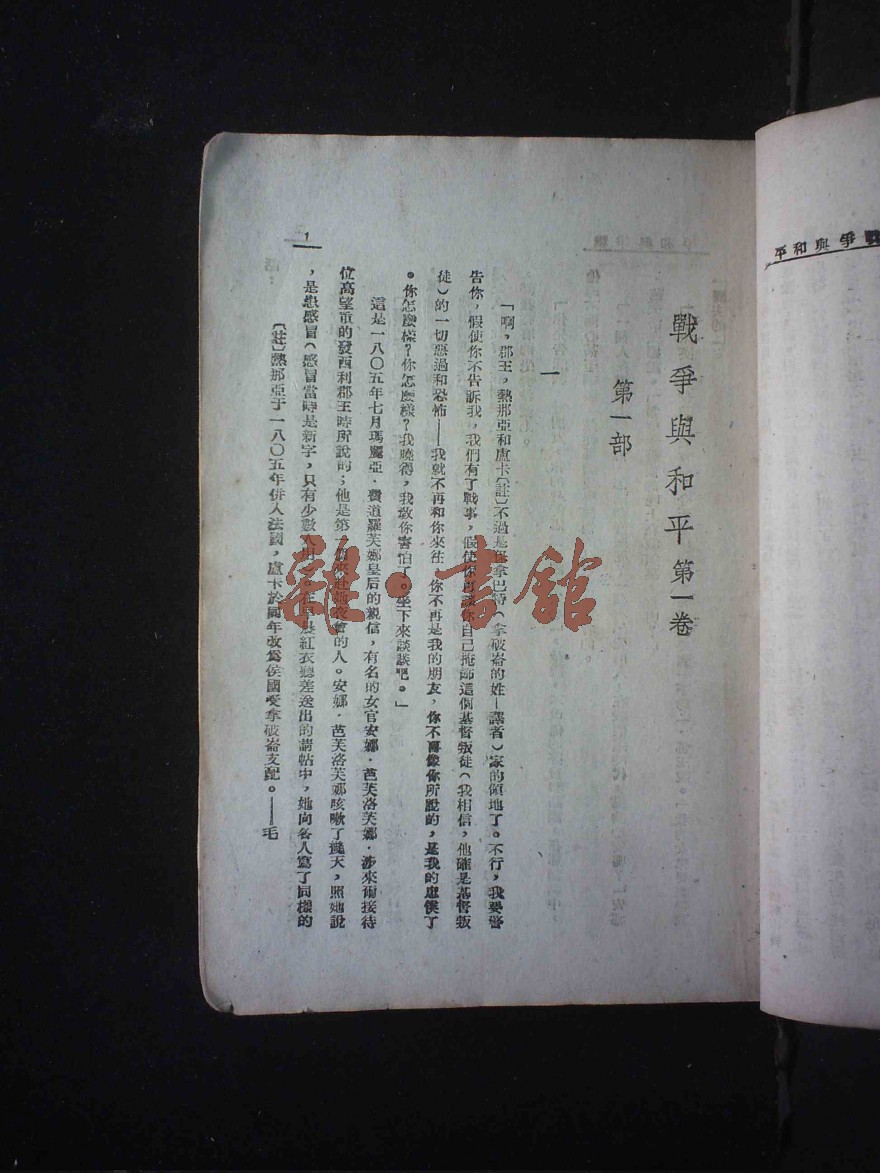 戰爭與和平 第一卷
第一部
一
「啊,郡王,熱那亞和盧卡〔註〕不過是保拿巴特(拿破崙的姓—譯者)家的領地了。不行,我要警
告你,假使你不告訴我,我們有了戰事,假使你再讓你自己掩飾這個基督叛徒(我相信,他確是基督叛
徒)的一切惡過和恐怖——我就不再和你來往 你不再是我的朋友,你不再像你所說的,是我的忠僕了
。你怎麼樣?你怎麼樣?我曉得,我教你害怕了。坐下來談談吧。」
這是一八〇五年七月瑪麗亞·費道羅芙娜皇后的親信,有名的女官安娜·芭芙洛芙娜·涉來爾接待
位高望重的發西利郡王時所說的;他是第 個來赴 夜會的人。安娜·芭芙洛芙娜咳嗽了幾天,照她說
,是患感冒(感冒當時是新字,只有少數人用)。在早晨紅衣聽差送出的請帖中,她向各人寫了同樣的
〔註〕熱那亞于一八〇五年併入法國,盧卡於同年改爲侯國受拿破崙支配。——毛
1
戰爭與和平
雜·書館